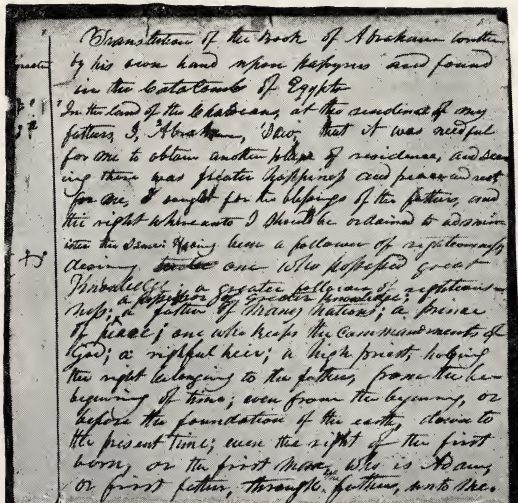 Translation of the Book of Abraham written
by his own hand upon papyrus and found
in the CataCombs of Egypts
In the land of the Chaldeans, at the residence of my
fathers, I, Abraham, Saw, that it was needful
for me to obtain another place of residence, and see-
ing there was greater happiness and peace and rest
for me, I sought for the blessings of the fathers, and
the right whereunto I should be ordained to admin-
ister the same: Having been a follower of righteousness
desiring one who possessed great
Knowledge; a greater follower of righteous-
a possessor of Greater Knowledge;
ness; a father of many nations; a prince
of peace; one who keeps the commandments of
God; a rightful heir; a high priest, holding
the right belonging to the fathers, from the be-
begining of time; even from the begining, or
before the foundation of the earth, down to
the present time; even the right of the first
born, or the first man, who is Adam,
or first father, through fathers, unto me.